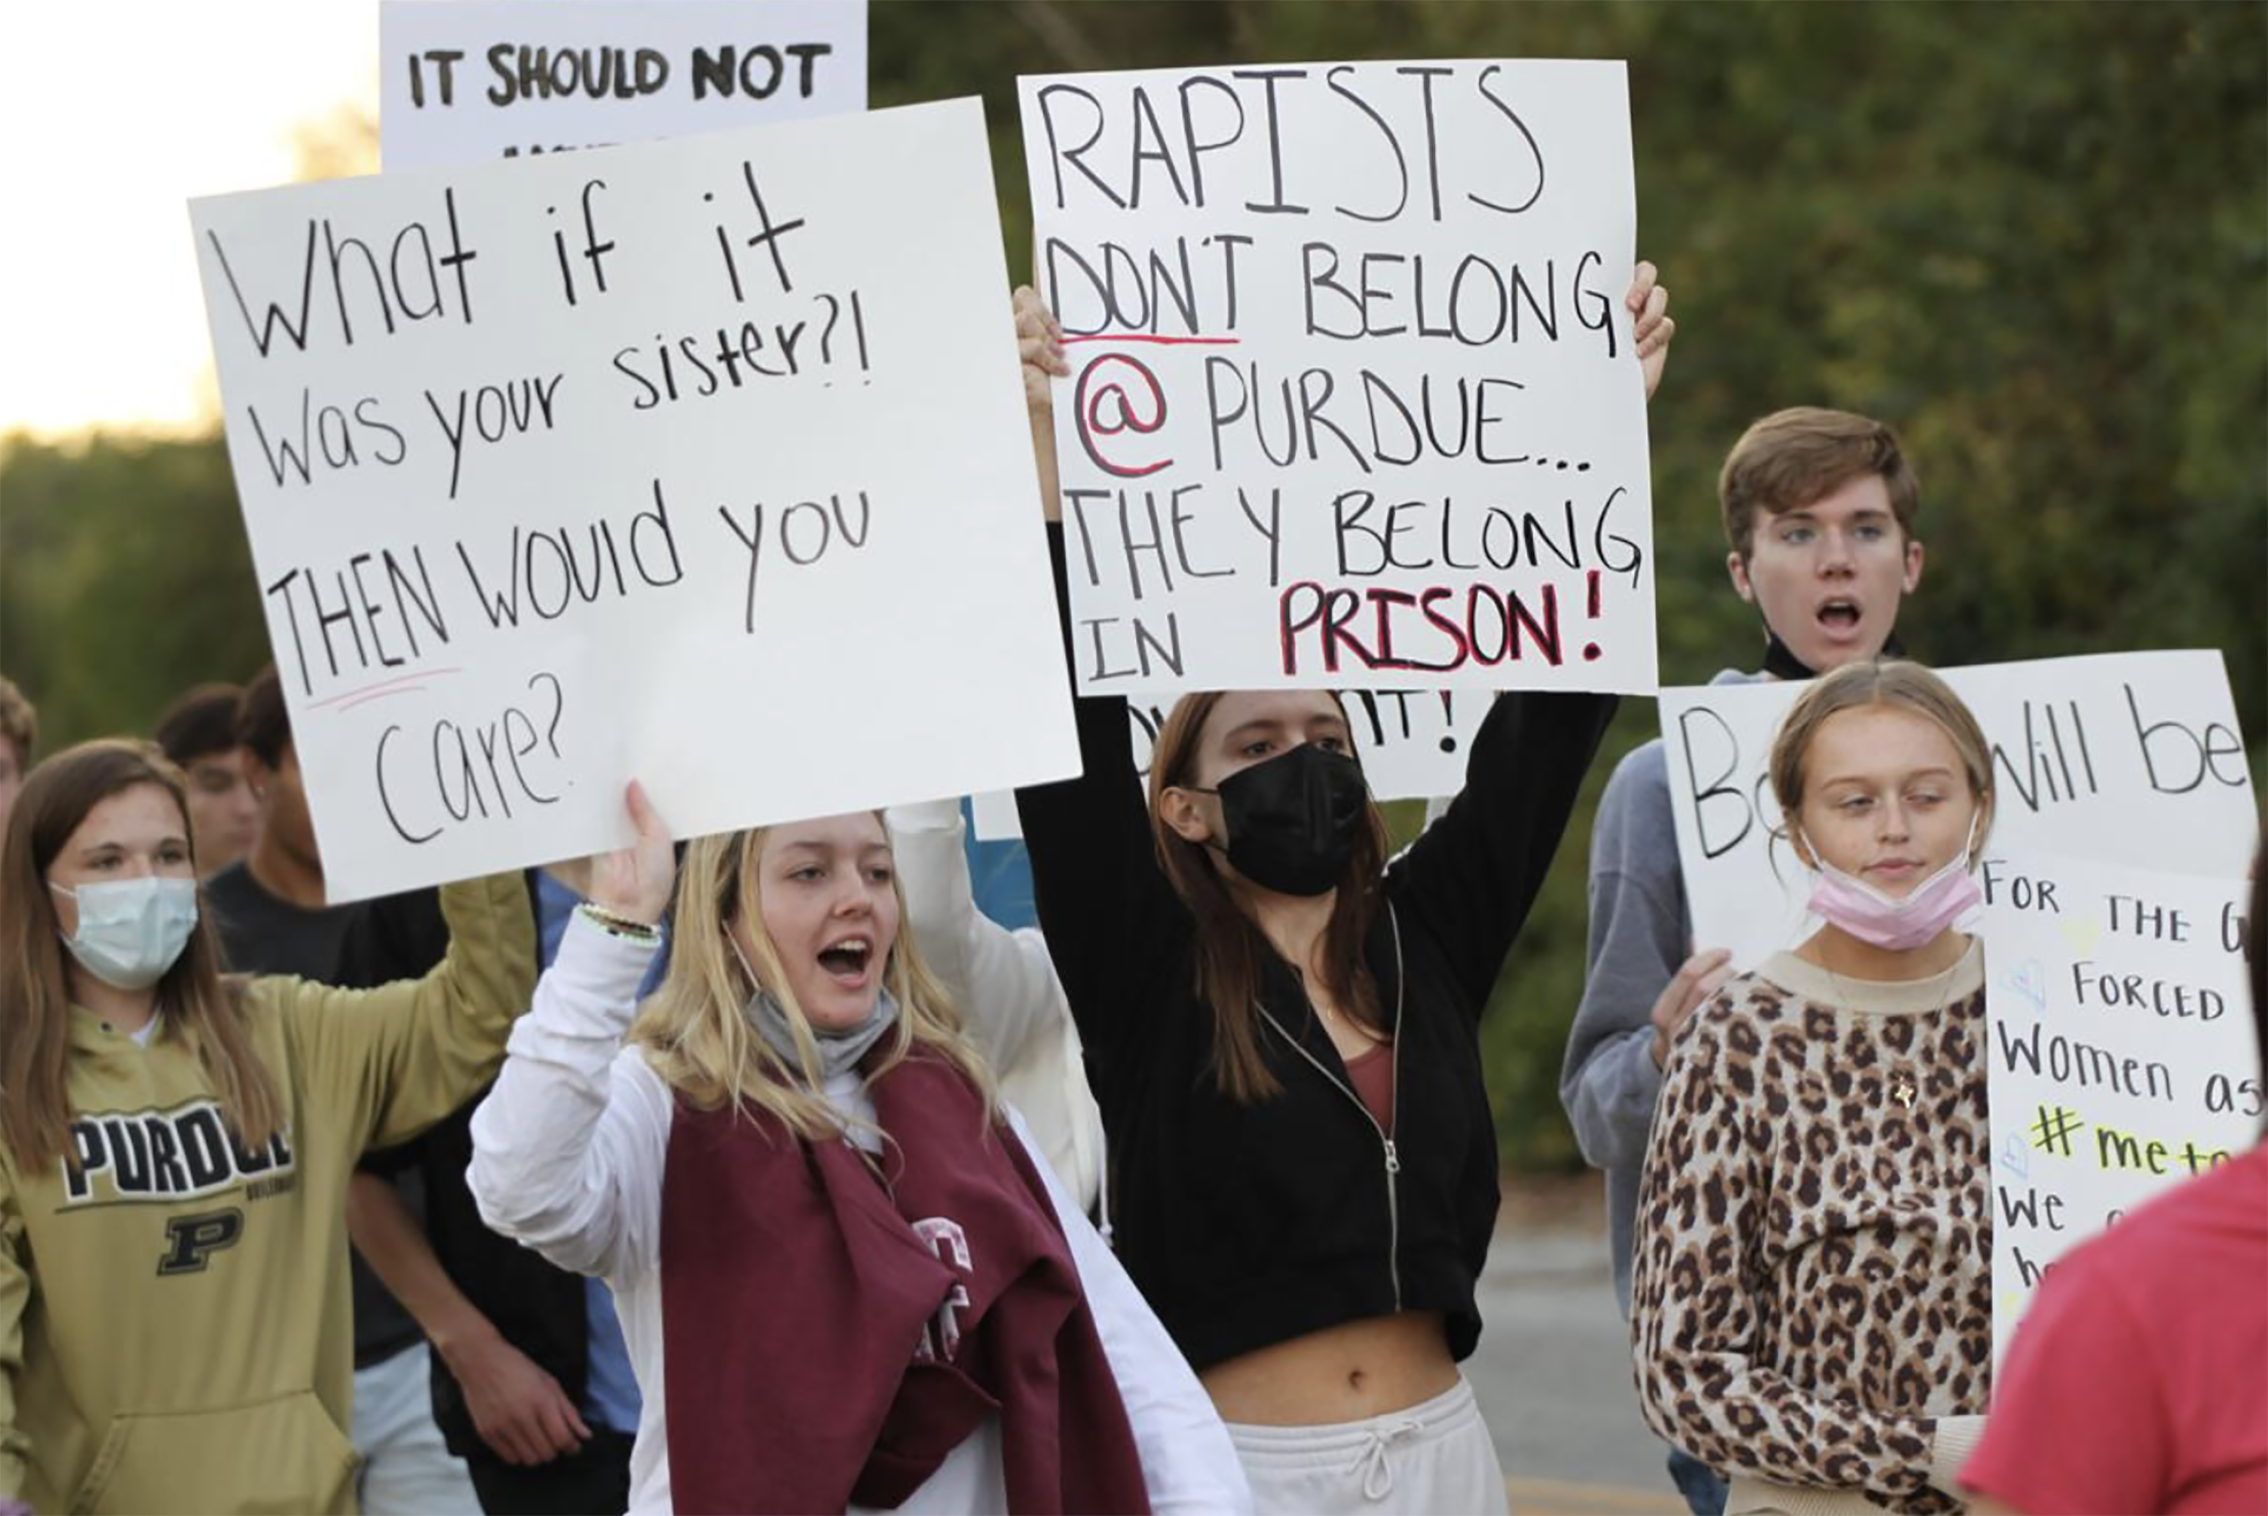 IT SHOULD NOT
What if it
Was your sister?!
THEN would you
care?
RAPISTS
DON'T BELONG
@ PURDUE...
THEY BELONG
IN PRISON!
IT!
Will be
FOR THE
FORCED
Women as
#meto
We
PURDUE
P